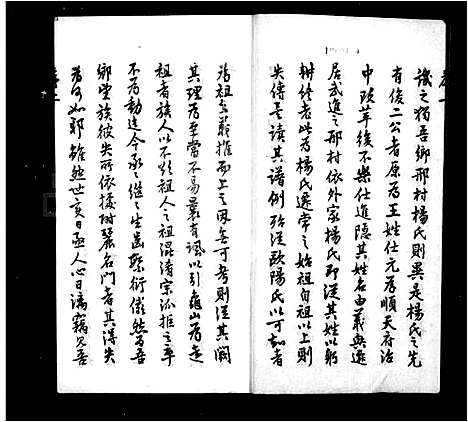 識之獨吾鄉邢村楊氏則異是楊氏之先
有俊二公者原為王姓仕元為順天府治
中項革後不樂仕進隱其姓名由義興遷
居武進之邢村依外家楊氏即從其姓以躬
耕終老此為楊氏遷常之始祖自祖以上則
失傳是譜其譜例殆從歐陽氏以可知者
為祖之義推而上之因無可考則從其闕
其理為至當不易最有諷以引龜山為走
祖者族人以不欲祖人之祖混淆宗派推之卒
不為動迄今承之繼之生齒繁衍儼然為吾
鄉望族彼失所依援附麗名門者其得失
為何如耶雖然世變日亟人心日漓竊見吾